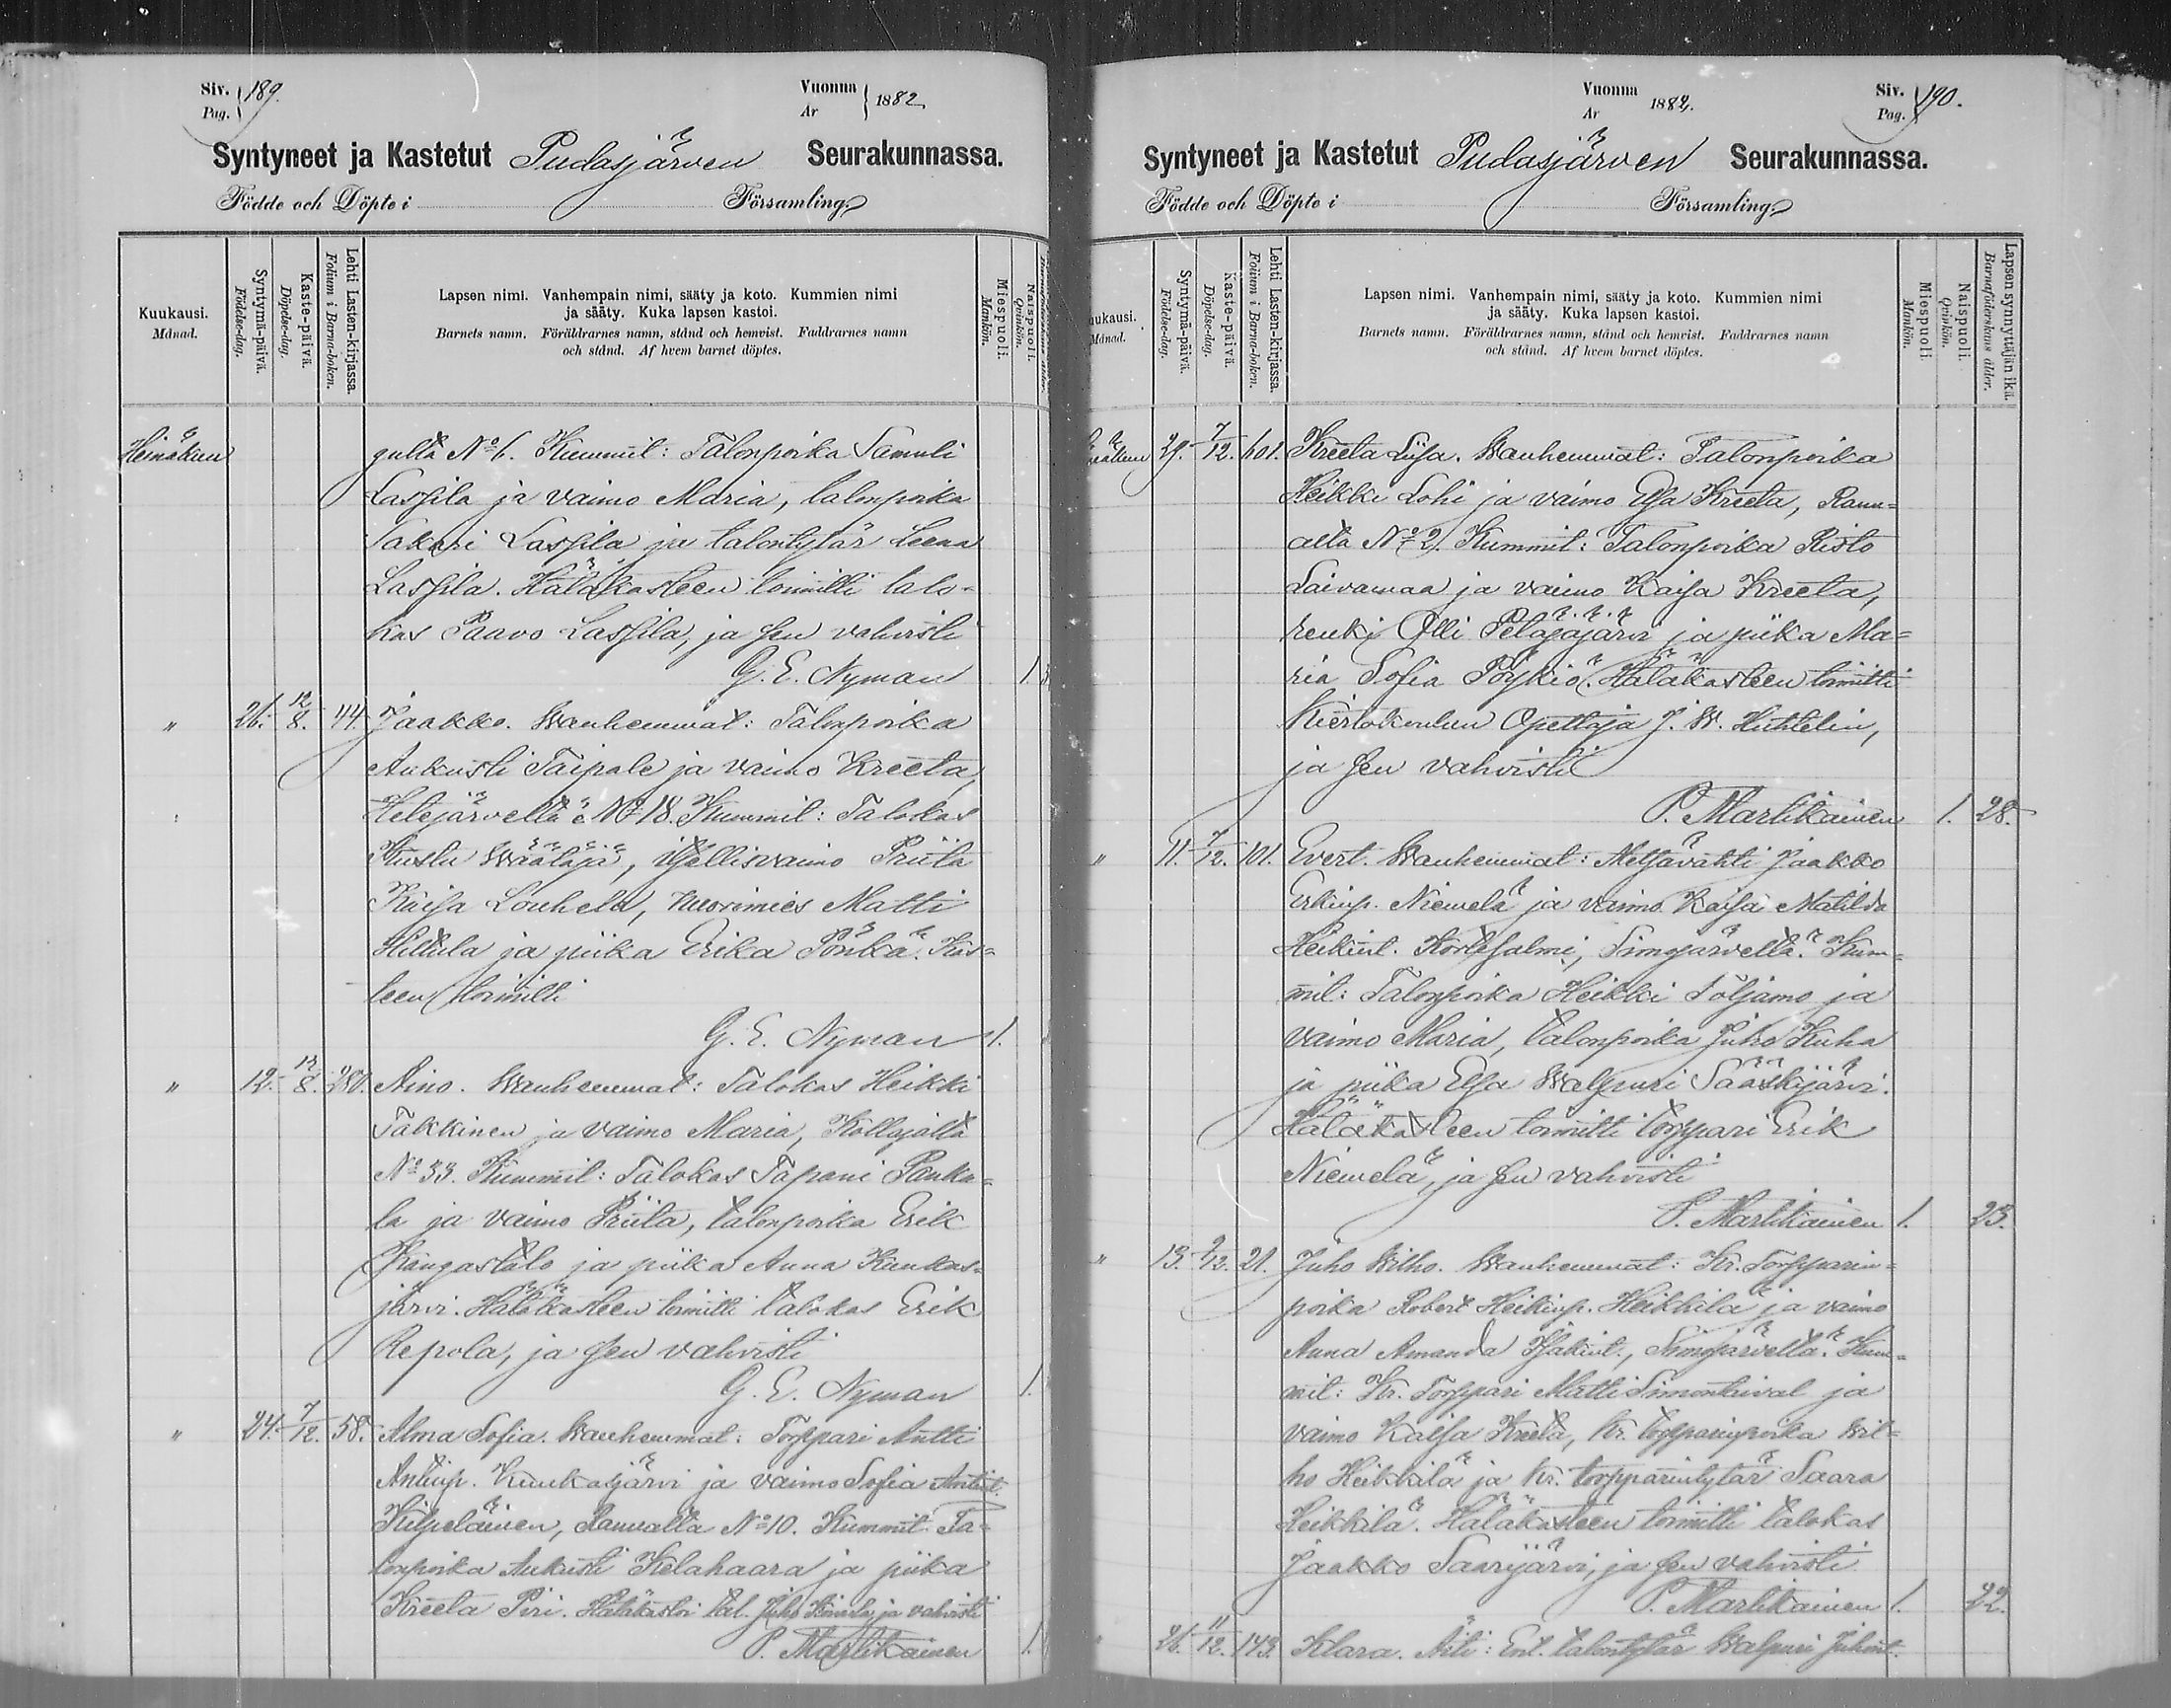 Siv. Pag. 189.
Vuonna År 1882
Syntyneet ja Kastetut Pudasjärven Seurakunnassa.
Födde och Döpte i Församling
Kuukausi. Månad.
Syntymä-päivä. Födelse-dag.
Kaste-päivä. Döpelse-dag.
Lehti Lasten-kirjassa. Folium i Barna-boken.
Lapsen nimi. Vanhempain nimi, sääty ja koto. Kummien nimi
ja sääty. Kuka lapsen kastoi.
Barnets namn. Föräldrarnes namn, stånd och hemvist. Faddrarnes namn
och stånd. Af hvem barnet döptes.
Miespuoli. Mankön.
Naispuoli. Qvinkön.
Heinäkuu gulta No 6. Kummit: Talonpoika Samuli
Lassila ja vaimo Maria, talonpoika
Sakari Lassila ja talontytär Leena
Lassila. Hätäkasteen toimitti talo-
kas Paavo Lassila, ja sen vahvisti
G. E. Nyman 1.
" 26. 12/8. 44. Jaakko. Wanhemmat: Talonpoika
Aukusti Taipale ja vaimo Kreeta,
Hetejärveltä No 18. Kummit: Talokas
Kustu Määtäjä, itsellisvaimo Priita
Kaisa Louhela, nuorimies Matti
Hiltula ja piika Erika Pönkä. Kas-
teen toimitti
G. E. Nyman 1.
" 12. 13/8. 280. Aino. Wanhemmat: Talokas Heikki
Takkinen ja vaimo Maria, Kollajalta
No 33. Kummit: Talokas Tapani Panka-
la ja vaimo Priita, talonpoika Erik
Kangastalo ja piika Anna Kuukas-
järvi. Hätäkasteen toimitti talokas Erik
Repola, ja sen vahvisti
G. E. Nyman 1.
" 24. 7/12. 58. Alma Sofia. Wanhemmat: Torppari Antti
Antinp. Kuukasjärvi ja vaimo Sofia Antint.
Kilpeläinen, Ranualta No 10. Kummit: Ta-
lonpoika Aukusti Kelahaara ja piika
Kreeta Piri. Hätäkastoi tal. Juho ja vahvisti
P. Martikainen 1.
Vuonna År 1882.
Siv. Pag. 190.
Syntyneet ja Kastetut Pudasjärven Seurakunnassa.
Födde och Döpte i Församling
uukausi. Månad.
Syntymä-päivä. Födelse-dag.
Kaste-päivä. Döpelse-dag.
Lehti Lasten-kirjassa. Folium i Barna-boken.
Lapsen nimi. Vanhempain nimi, sääty ja koto. Kummien nimi
ja sääty. Kuka lapsen kastoi.
Barnets namn. Föräldrarnes namn, stånd och hemvist. Faddrarnes namn
och stånd. Af hvem barnet döptes.
Miespuoli. Mankön.
Naispuoli. Qvinkön.
Lapsen synnyttäjän ikä. Barnaföderskans ålder.
29. 7/12. 601. Kreeta Liisa. Wanhemmat: Talonpoika
Heikki Lohi ja vaimo Elsa Kreeta, Ranu-
alta No 2. Kummit: Talonpoika Risto
Laivamaa ja vaimo Kaisa Kreeta,
renki Olli Petäjäjärvi ja piika Ma-
ria Sofia Pöykiö. Hätäkasteen toimitti
Kiertokoulun Opettaja J. W. Huhtelin,
ja sen vahvisti
P. Martikainen 1. 28.
" 11. 7/12. 101. Evert. Wanhemmat: Metsävahti Jaakko
Erkinp. Niemelä ja vaimo Kaisa Matilda
Heikint. Kortesalmi, Simojärveltä. Kum-
mit: Talonpoika Heikki Toljamo ja
vaimo Maria, talonpoika Juho Kuha
ja piika Elsa Walpuri Sääskijärvi.
Hätäkasteen toimitti torppari Erik
Niemelä, ja sen vahvisti
P. Martikainen 1. 23.
" 13. 9/12. 21. Juho Wilho. Wanhemmat: Kr. Torpparin-
poika Robert Heikinp. Heikkilä ja vaimo
Anna Amanda Isakint., Simojärveltä. Kum-
mit: Kr. Torppari Matti Simontaival ja
vaimo Kaisa Kreeta, kr. torpparinpoika Wil-
ho Heikkilä ja kr. torpparintytär Saara
Heikkilä. Hätäkasteen toimitti talokas
Jaakko Saarijärvi, ja sen vahvisti
P. Martikainen 1. 22.
26. 11/12. 143. Klara. Äiti: Ent. talontytär Walpuri Juhont.